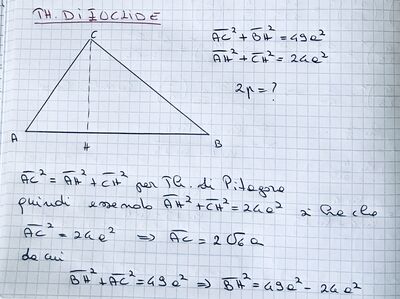 TH. DI EUCLIDE
C
AC² + BH² = 49a²
AH² + CH² = 24a²
2p = ?
A H B
AC² = AH² + CH² per Th. di Pitagora
quindi essendo AH² + CH² = 24a² si ha che
AC² = 24a² ⇒ AC = 2√6 a
da cui
BH² + AC² = 49a² ⇒ BH² = 49a² - 24a²